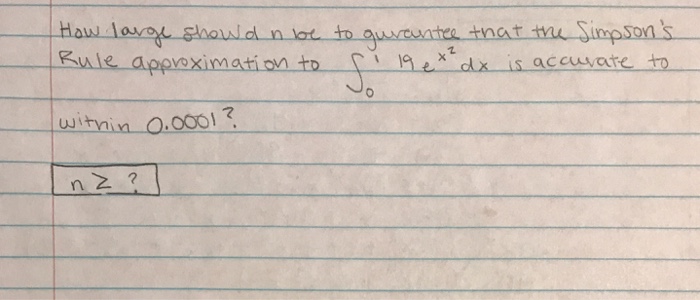 How large should n be to gurantee that the Simpson's
Rule approximation to ∫₀¹ 19e^x² dx is accurate to
within 0.0001?
n ≥ ?